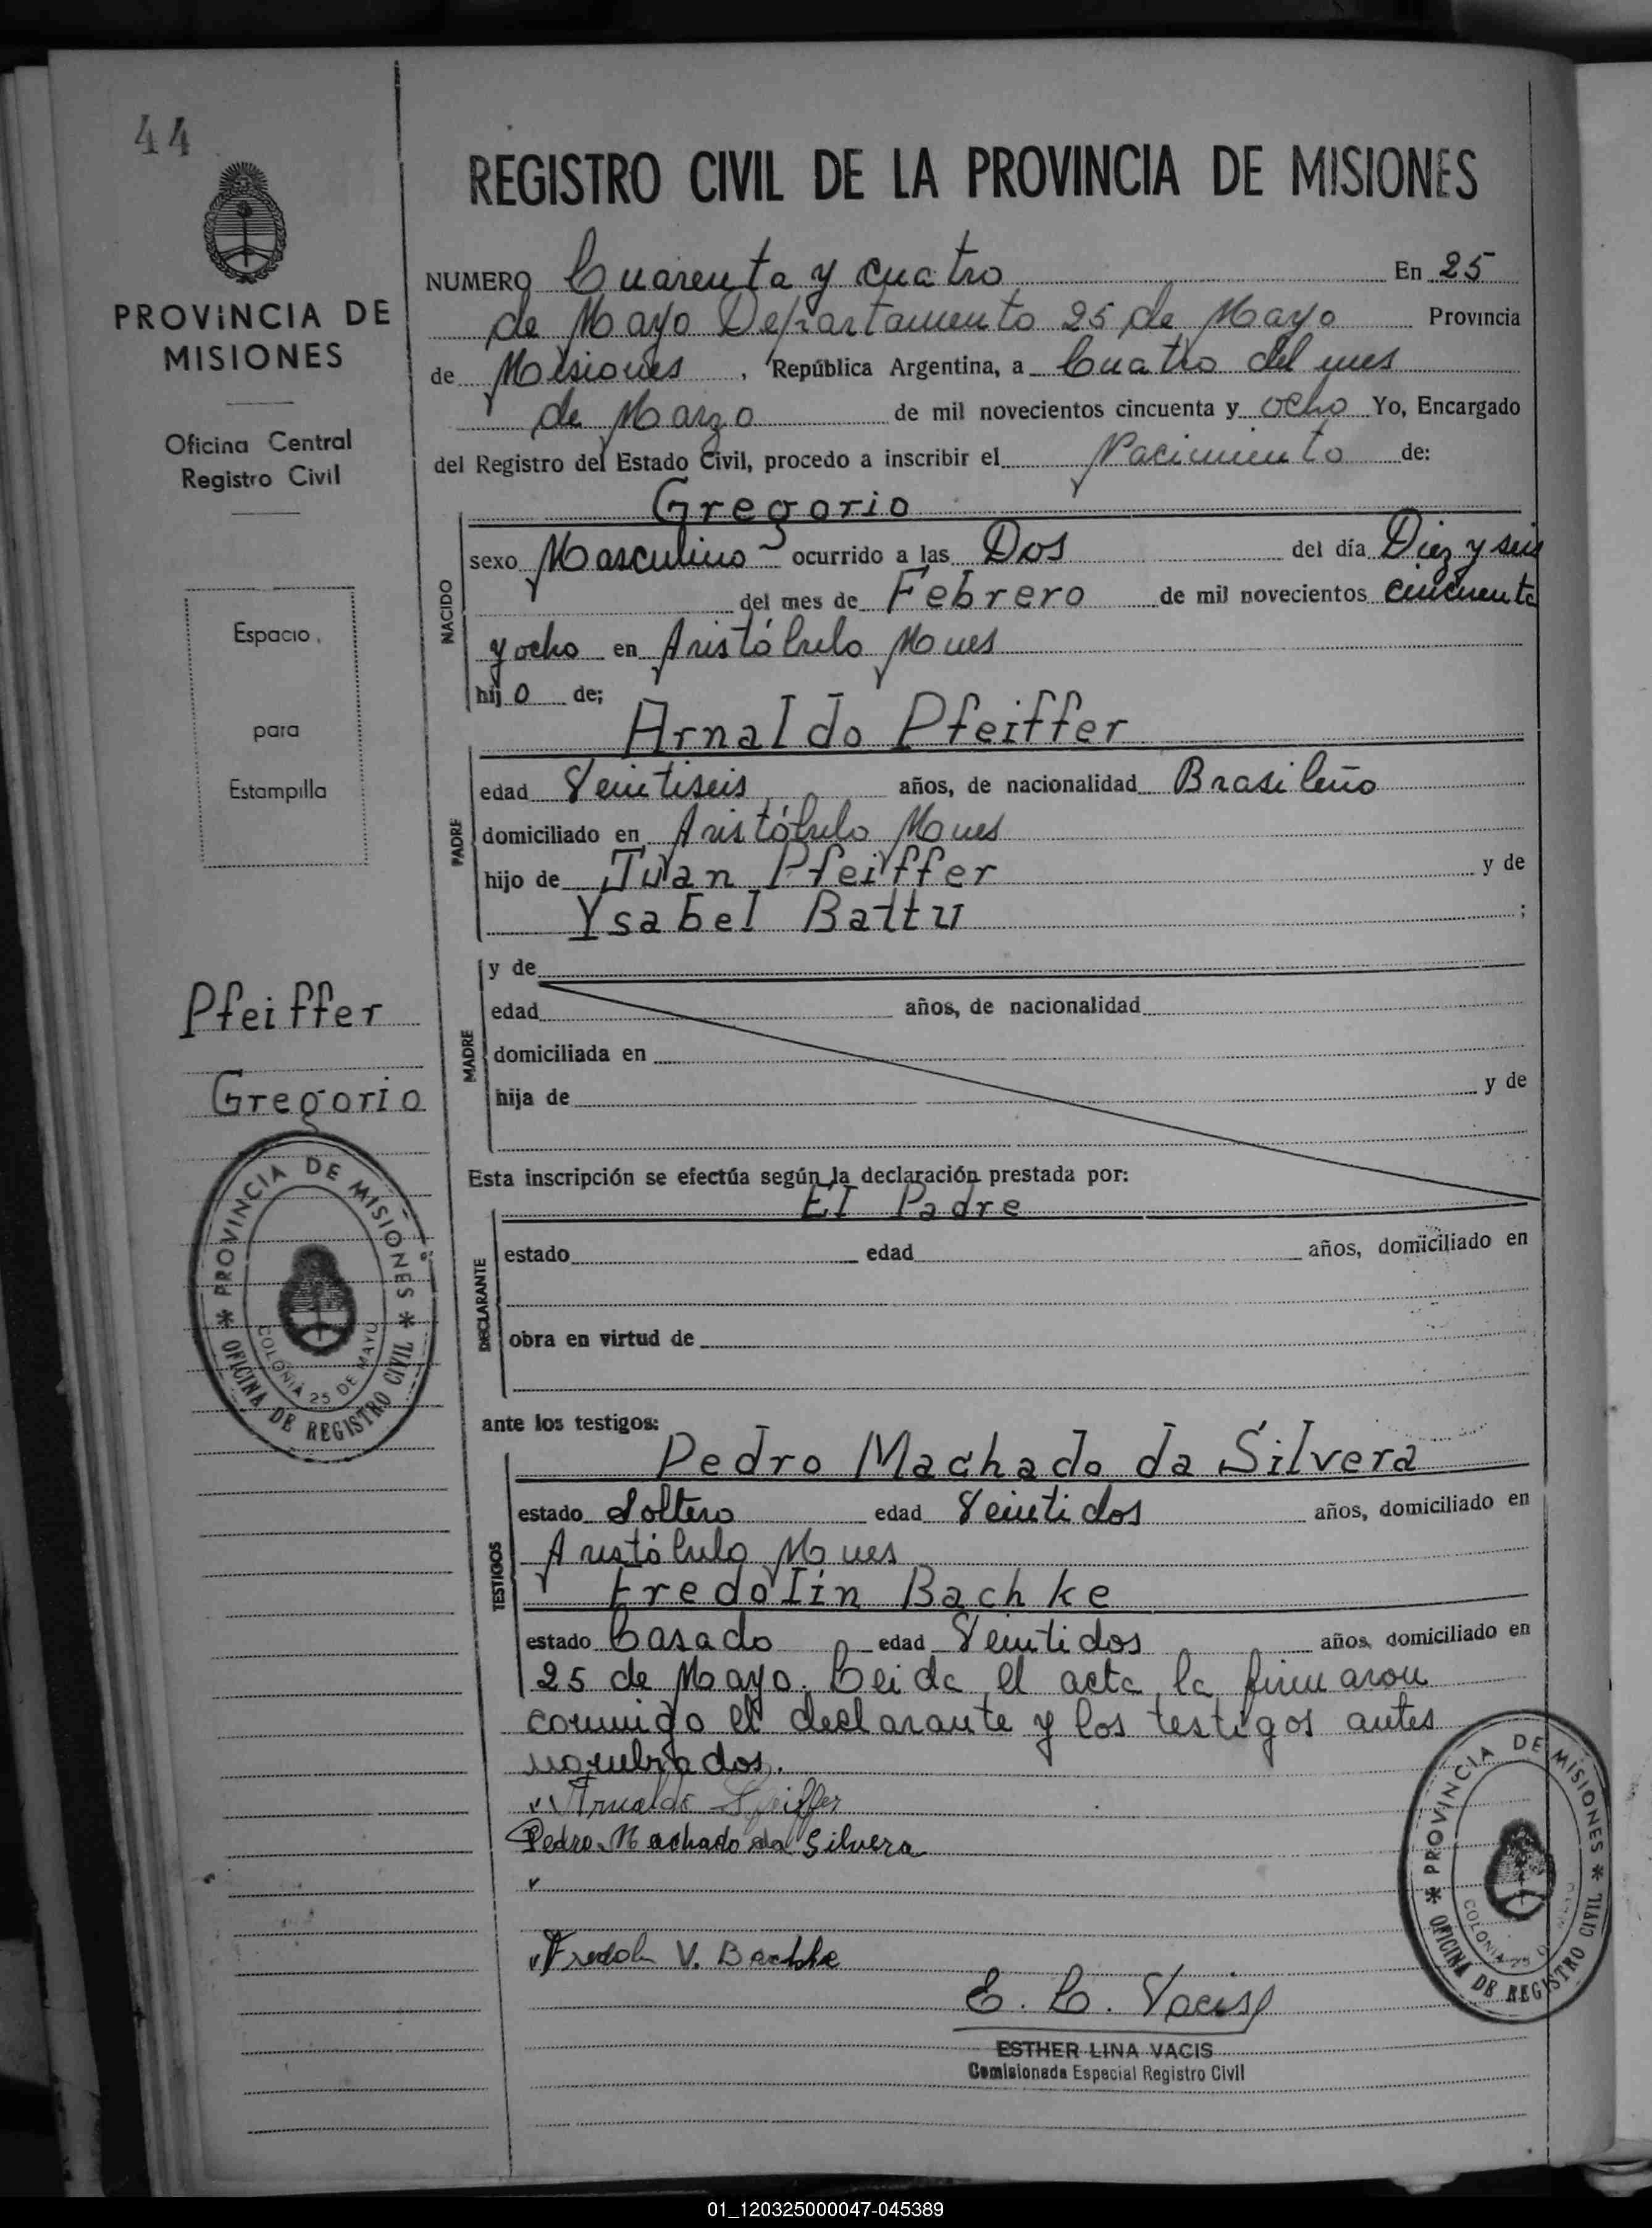 44
REGISTRO CIVIL DE LA PROVINCIA DE MISIONES
PROVINCIA DE
MISIONES
Oficina Central
Registro Civil
Espacio
para
Estampilla
Pfeiffer
Gregorio
PROVINCIA DE MISIONES
OFICINA DE REGISTRO CIVIL
COLONIA 25 DE MAYO
NUMERO Cuarenta y cuatro En 25
de Mayo Departamento 25 de Mayo Provincia
de Misiones, República Argentina, a Cuatro del mes
de Marzo de mil novecientos cincuenta y ocho Yo, Encargado
del Registro del Estado Civil, procedo a inscribir el Nacimiento de:
NACIDO
Gregorio
sexo Masculino ocurrido a las Dos del día Diez y seis
del mes de Febrero de mil novecientos cincuenta
y ocho en Aristóbulo
hijo de;
PADRE
Arnaldo Pfeiffer
edad Veintiseis años, de nacionalidad Brasileño
domiciliado en Aristóbulo
hijo de Juan Pfeiffer y de
Ysabel Battu ;
MADRE
y de
edad años, de nacionalidad
domiciliada en
hija de y de
Esta inscripción se efectúa según la declaración prestada por:
DECLARANTE
El Padre
estado edad años, domiciliado en
obra en virtud de
ante los testigos:
TESTIGOS
Pedro Machado da Silvera
estado Soltero edad Veintidos años, domiciliado en
Aristóbulo
Fredolin Bachke
estado Casado edad Veintidos años, domiciliado en
25 de Mayo. Leida el acta la firmaron
conmigo el declarante y los testigos antes
nombrados.
Arnaldo Pfeiffer
Pedro Machado da Silvera
V. Bachke
E. L. Vacis
ESTHER LINA VACIS
Comisionada Especial Registro Civil
PROVINCIA DE MISIONES
OFICINA DE REGISTRO CIVIL
COLONIA 25
01_120325000047-045389